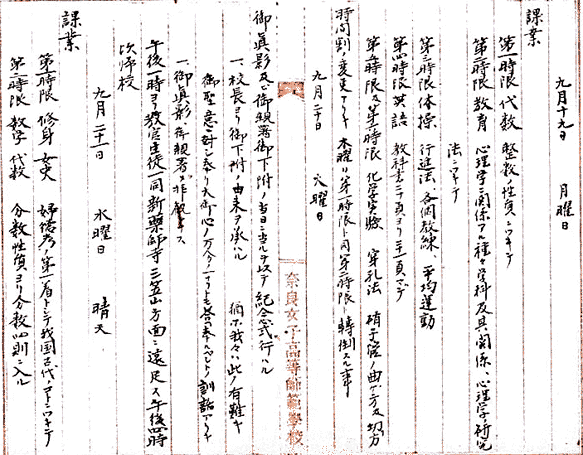 九月十九日　月曜日
課業
第一時限　代数　整数ノ性質ニツキテ
第二時限　教育　心理学ニ関係アル種々学科及其関係、心理学研究
法ニツキテ
第三時限　体操　行進法、各個教練、平均運動
第四時限　英語　教科書二十頁ヨリ二十一頁マデ
第五時限及第六時限　化学実験　穿孔法　硝子管ノ曲ゲ方及切方
時間割ノ変更アリキ　木曜ノ第一時限ト同第二時限ト転倒スル事
九月二十日　火曜日
御真影及ビ御親署御下附ノ当日ニ当ルヲ以テ紀念式行ハル
一、校長ヨリ御下附ノ由来ヲ承ハル　猶ホ我々ハ此ノ有難キ
御聖意ニ対シ奉リ大御心ノ万分ノ一ヲモ答ヘ奉ベシトノ訓話アリキ
一、御真影、御親署ヲ拝観ス
午後一時ヨリ教官生徒一同新薬師寺三笠山方面ニ遠足ス午後四時
次帰校
九月二十一日　水曜日　晴天
課業
第一時限　修身　女史　婦徳ノ第一着トシテ我国古代ノ
第二時限　数学　代数　分数性質ヨリ分数四則ニ入ル
奈良女子高等師範学校